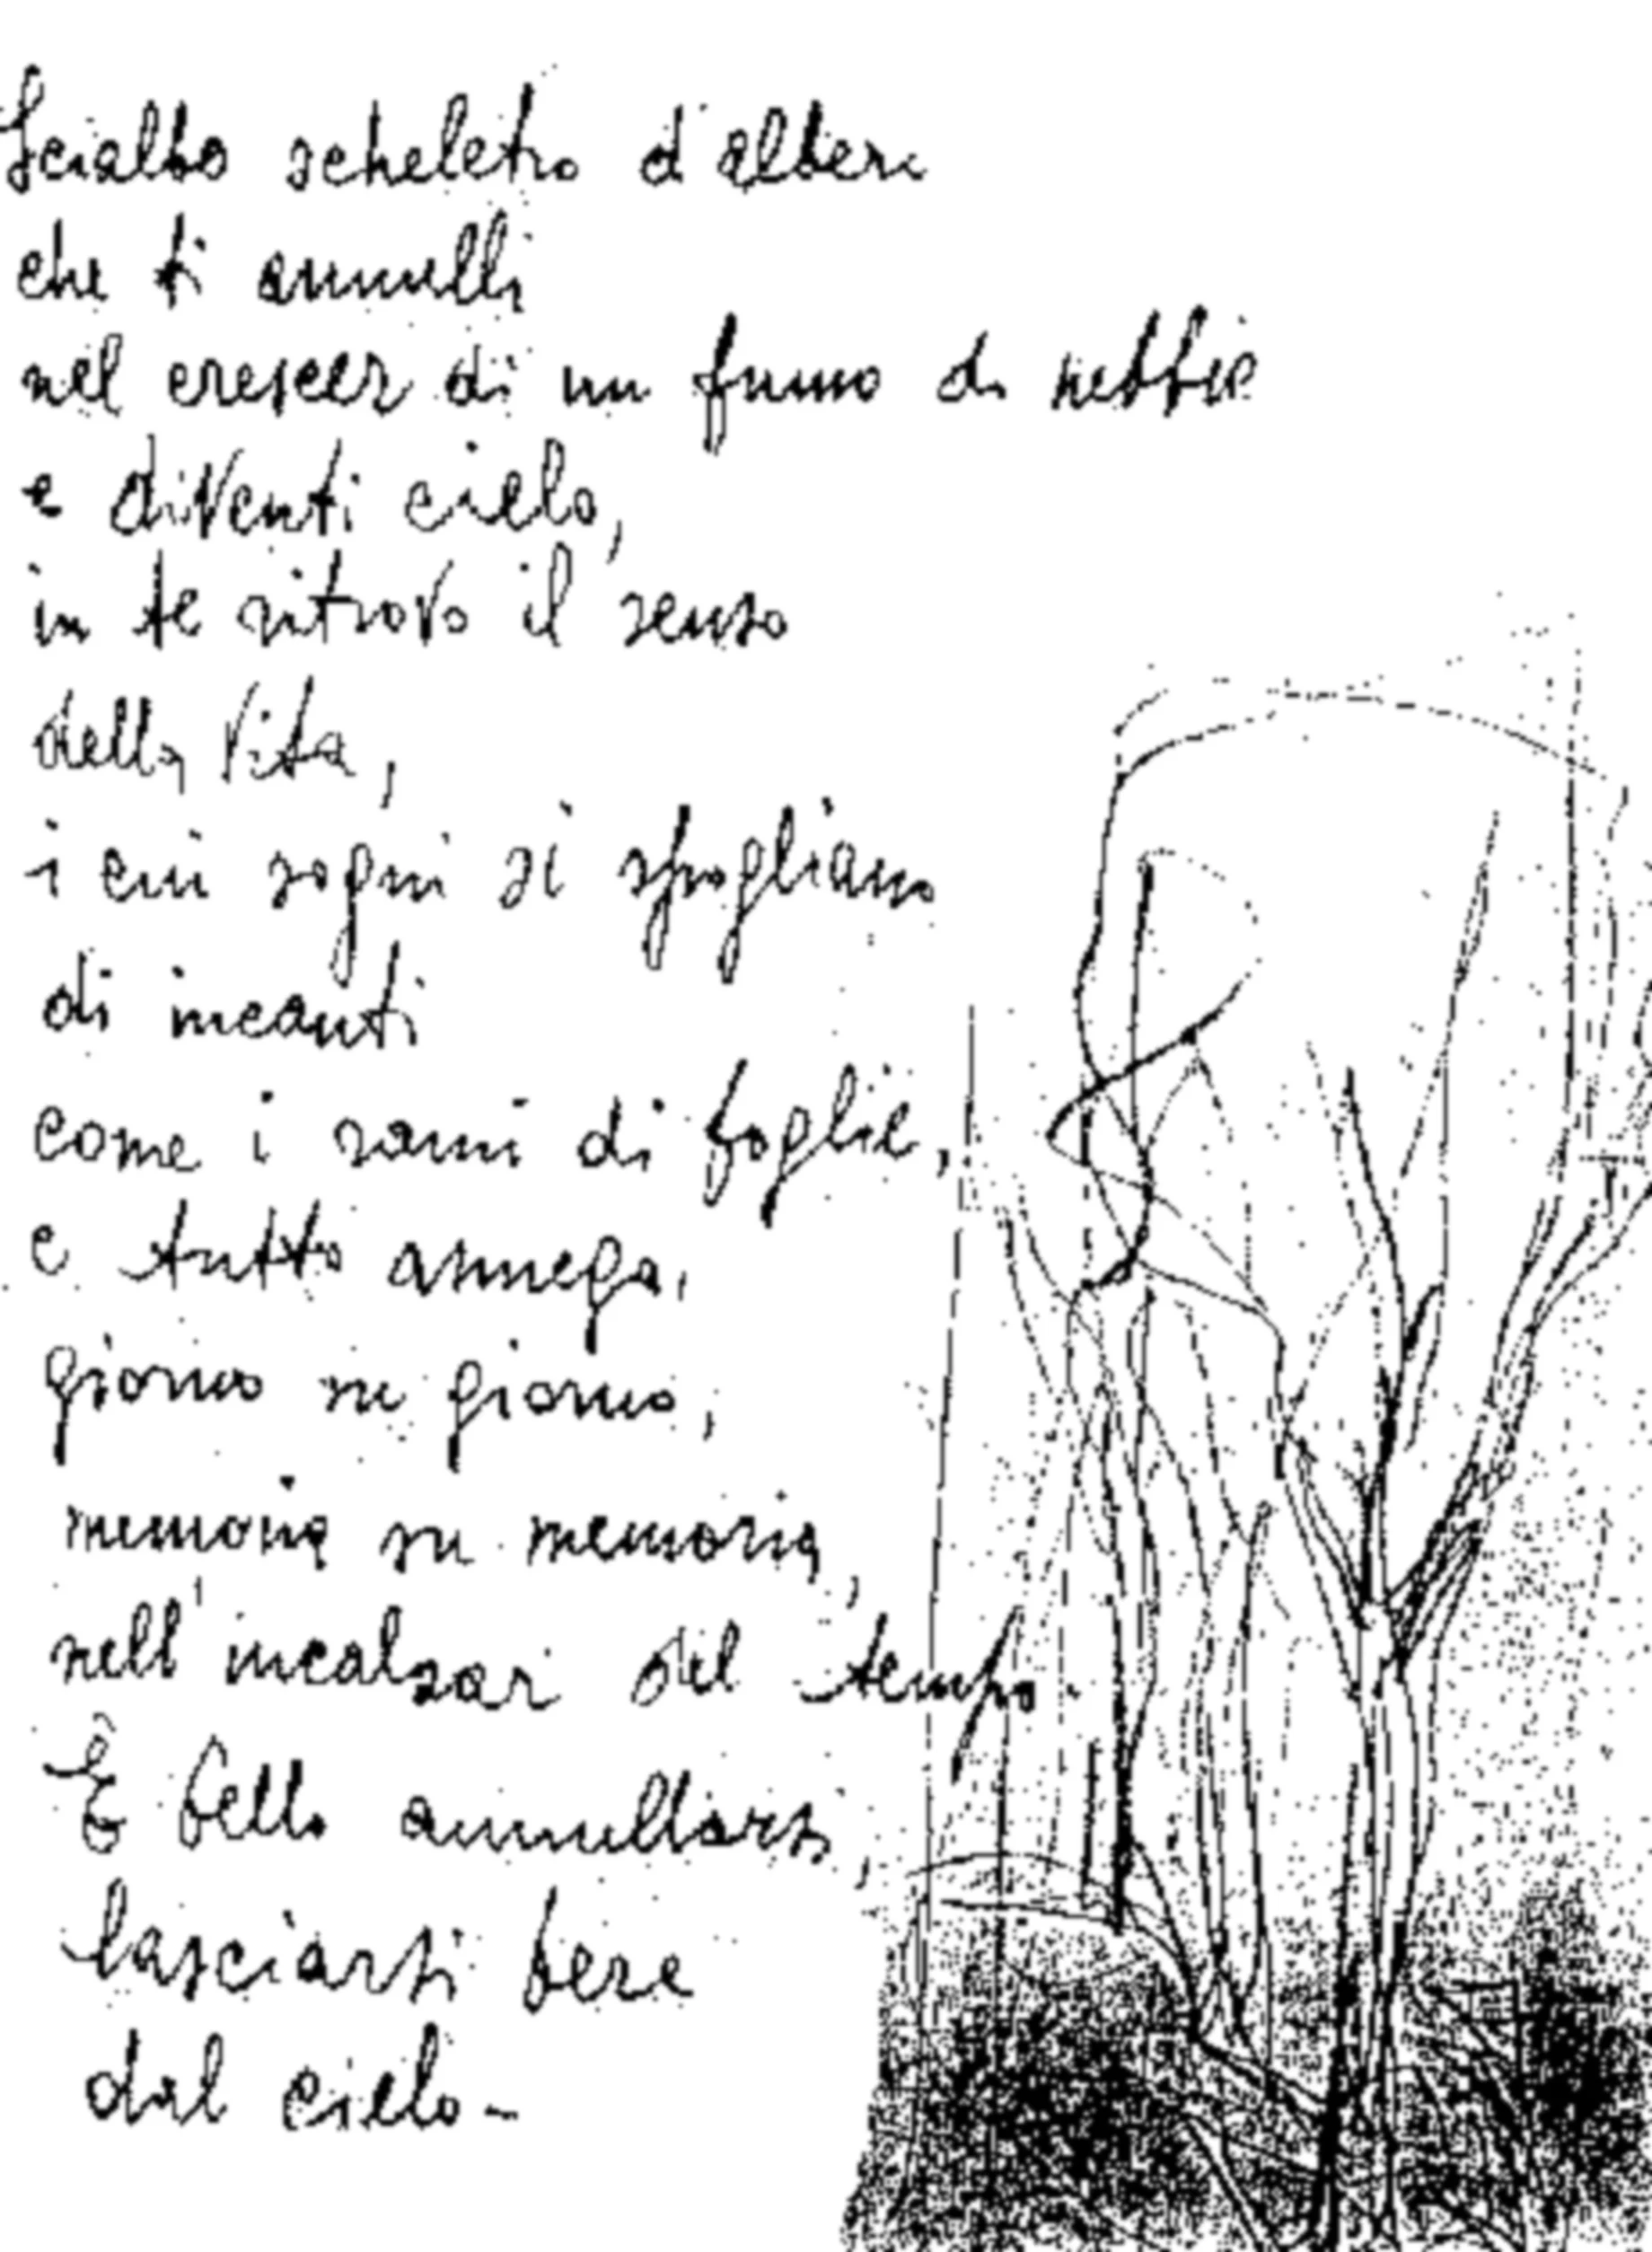 Scialbo scheletro d'alberi
che ti annulli
nel crescer di un fumo di nebbie
e diventi cielo,
in te ritrovo il senso
della vita,
i cui sogni si spogliano
di incanti
come i rami di foglie,
e tutto annega,
giorno su giorno,
memoria su memoria,
nell'incalzar del tempo.
È bello annullarsi,
lasciarsi bere
dal cielo-